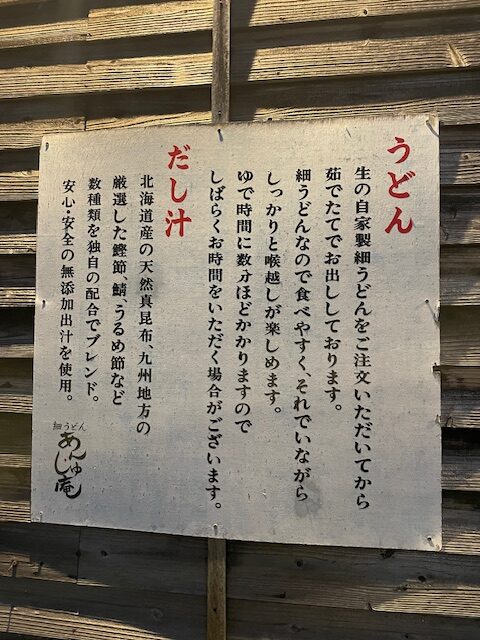 うどん
生の自家製細うどんをご注文いただいてから
茹でたてでお出ししております。
細うどんなので食べやすく、それでいながら
しっかりと喉越しが楽しめます。
ゆで時間に数分ほどかかりますので
しばらくお時間をいただく場合がございます。
だし汁
北海道産の天然真昆布、九州地方の
厳選した鰹節、鯖、うるめ節など
数種類を独自の配合でブレンド。
安心・安全の無添加出汁を使用。
細うどん
あんじゅ庵